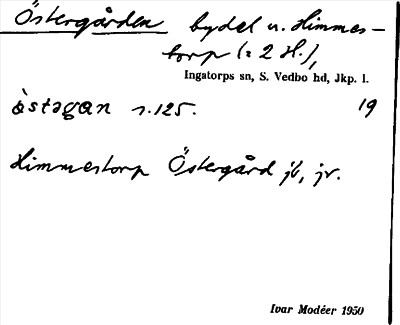 Östergården bydel u. Himmes-
torp (= 2 H.),
Ingatorps sn, S. Vedbo hd, Jkp. l.
àstəgan s. 125. 19
Himmestorp Östergård jb, jr.
Ivar Modéer 1950